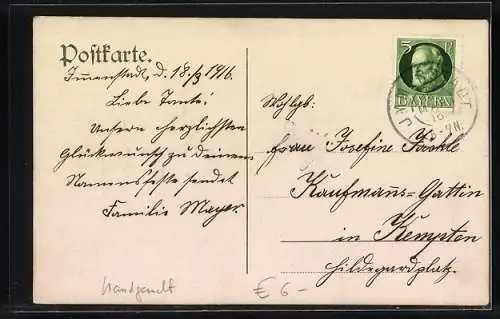 Postkarte.
Immenstadt, d. 18./3 1916.
Liebe Tante!
Unsern herzlichsten
Glückwunsch zu deinem
Namensfeste sendet
Familie Mayer.
5 Pf
BAYERN
Wohlgb.
Frau Josefine
Kaufmanns-Gattin
in Kempten
Hildegardplatz.
handgemalt
€ 6-